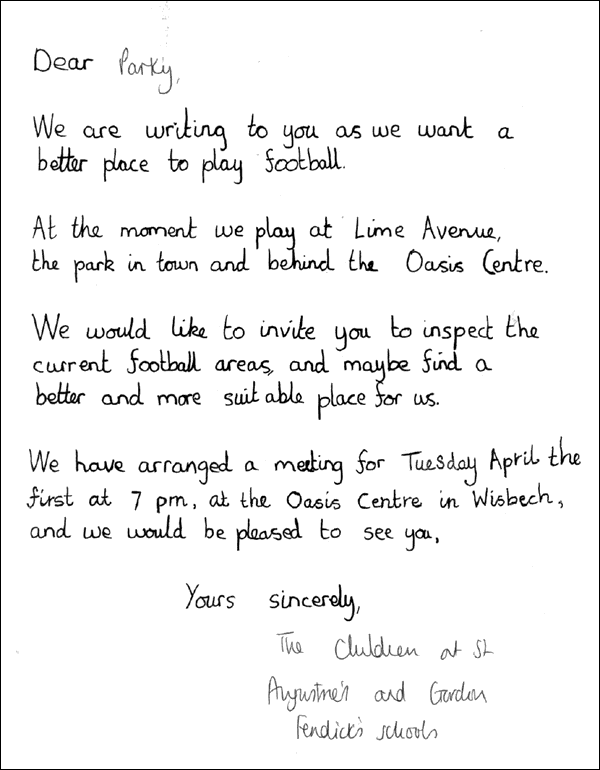 Dear Parky,
We are writing to you as we want a
better place to play football.
At the moment we play at Lime Avenue,
the park in town and behind the Oasis Centre.
We would like to invite you to inspect the
current football areas, and maybe find a
better and more suitable place for us.
We have arranged a meeting for Tuesday April the
first at 7 pm, at the Oasis Centre in Wisbech,
and we would be pleased to see you,
Yours sincerely,
The Children at St
Augustine's and Gordon
Fendick's schools